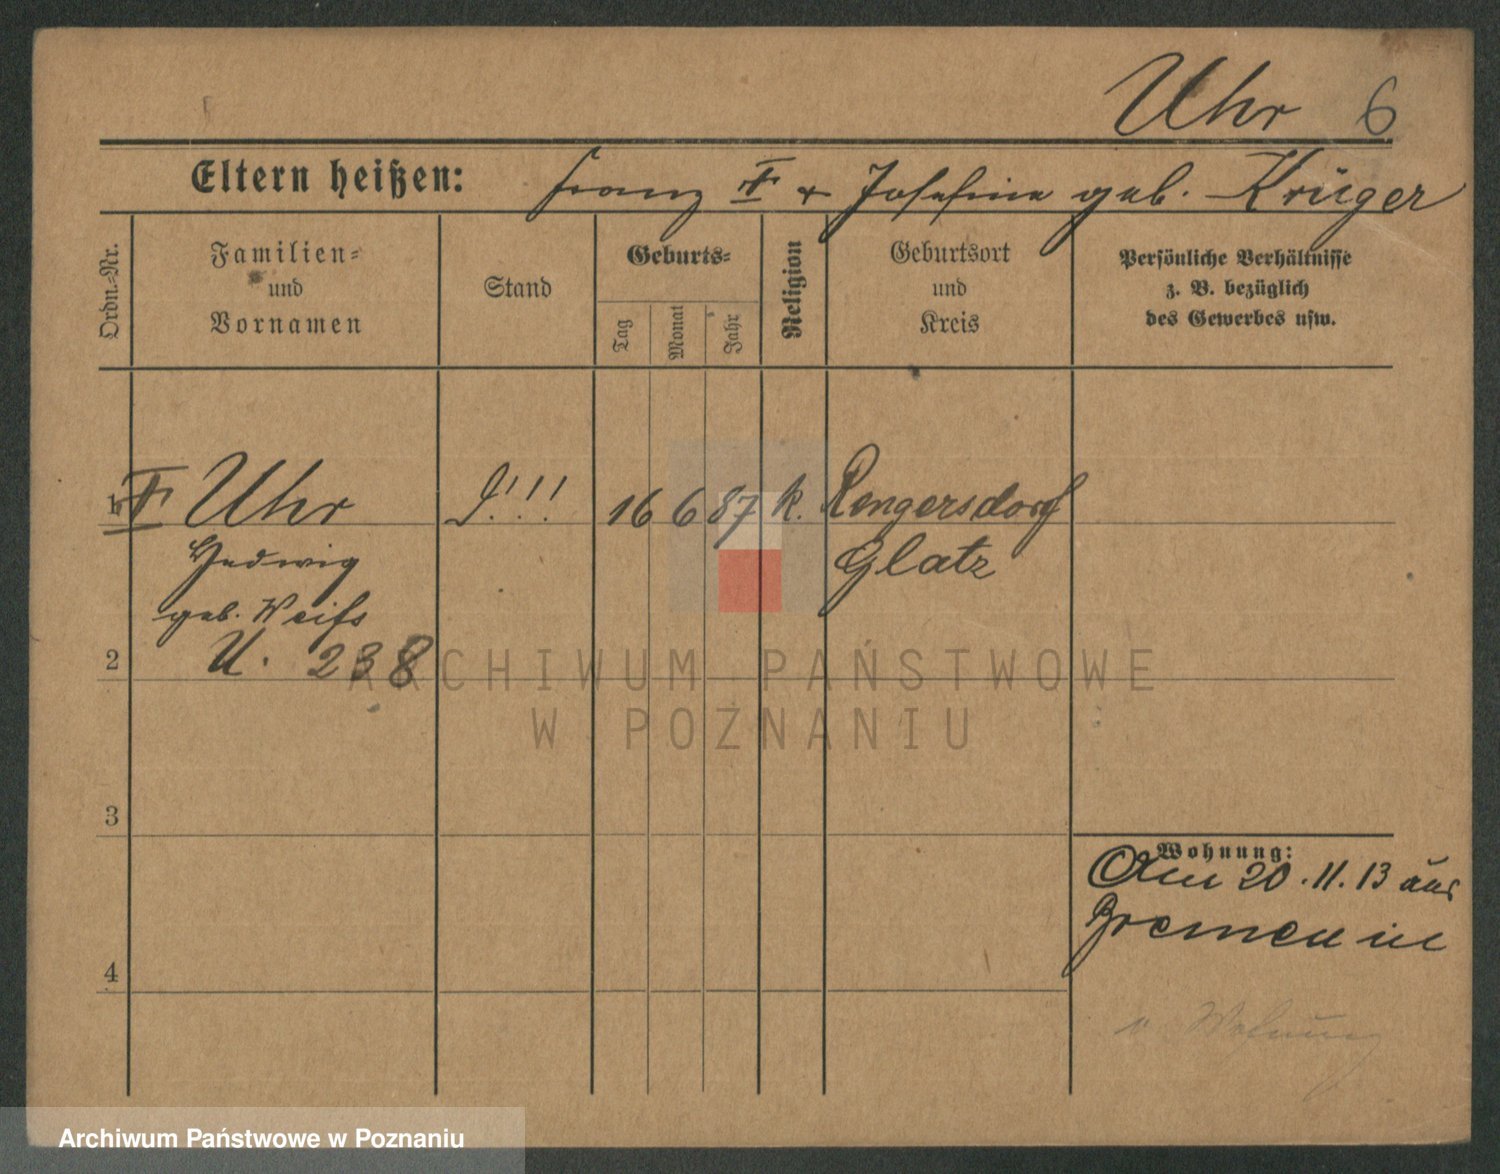 Uhr 6
Eltern heißen: Franz + Josefine geb. Krüger
Ordn.-Nr.
Familien-
und
Vornamen
Stand
Geburts-
Tag
Monat
Jahr
Religion
Geburtsort
und
Kreis
Persönliche Verhältnisse
z. B. bezüglich
des Gewerbes usw.
Uhr !!! 16 6 87 k. Rengersdorf
Hedwig Glatz
geb. Weiss
2 U. 238
ARCHIWUM PAŃSTWOWE
W POZNANIU
3
Wohnung:
Am 20.11.13 aus
Bremen in
4
v. Wohnung
Archiwum Państwowe w Poznaniu